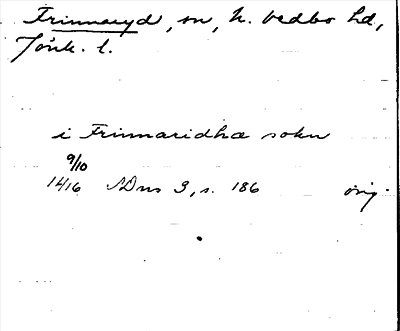 Frinnaryd, sn, N. Vedbo hd,
Jönk. l.
i Frinnaridha sokn
9/10
1416 SDns 3, s. 186 orig.